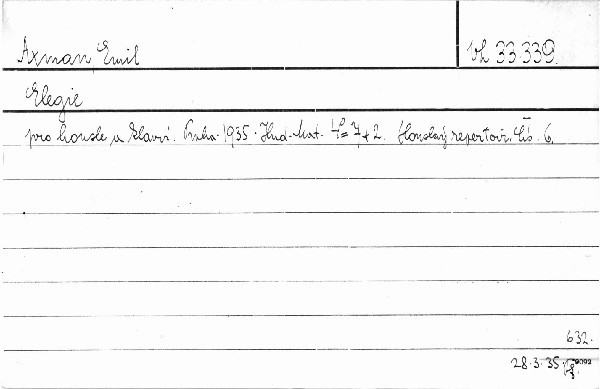 Axman Emil
Vh 33.339.
Elegie
pro housle a klavír. Praha. 1935. Hud. Mat. 4° = 7 + 2. Houslový repertoir. Čís. 6.
632.
28.3.35.
9092